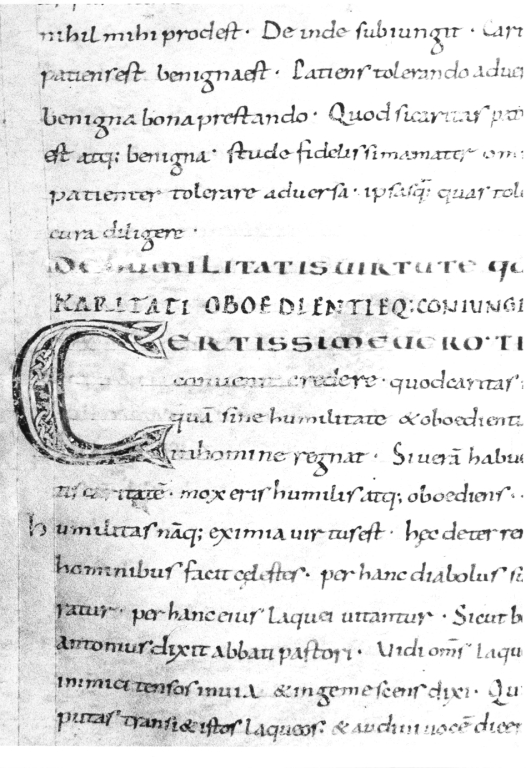 nihil mihi prodest · De inde subiungit · Cari
patiens est benigna est · Patiens tolerando adver
benigna bona prestando · Quod si caritas pa
est atq: benigna · stude fidelissima mater om
patienter tolerare adversa · ipsasq̄ quas tole
cura diligere ·
DE HUMILITATIS UIRTUTE
KARITATI OBOEDIENTIEQ: CONIUNGI
CERTISSIME UERO · TI
convenit credere · quod caritas
quā sine humilitate & oboedienti
in homine regnat · Si uerā habue
tis caritatē · mox eris humilis atq; oboediens ·
humilitas nāq; eximia uirtus est · hęc deter
hominibus facit cęlestes · per hanc diabolus
ratur · per hanc eius laquei uitantur · Sicut b
antonius dixit abbati pastori · Uidi om̄s laque
inimici tensos in uia & ingemescens dixi · Qu
putas transi& istos laqueos · & audiui uocē dicen